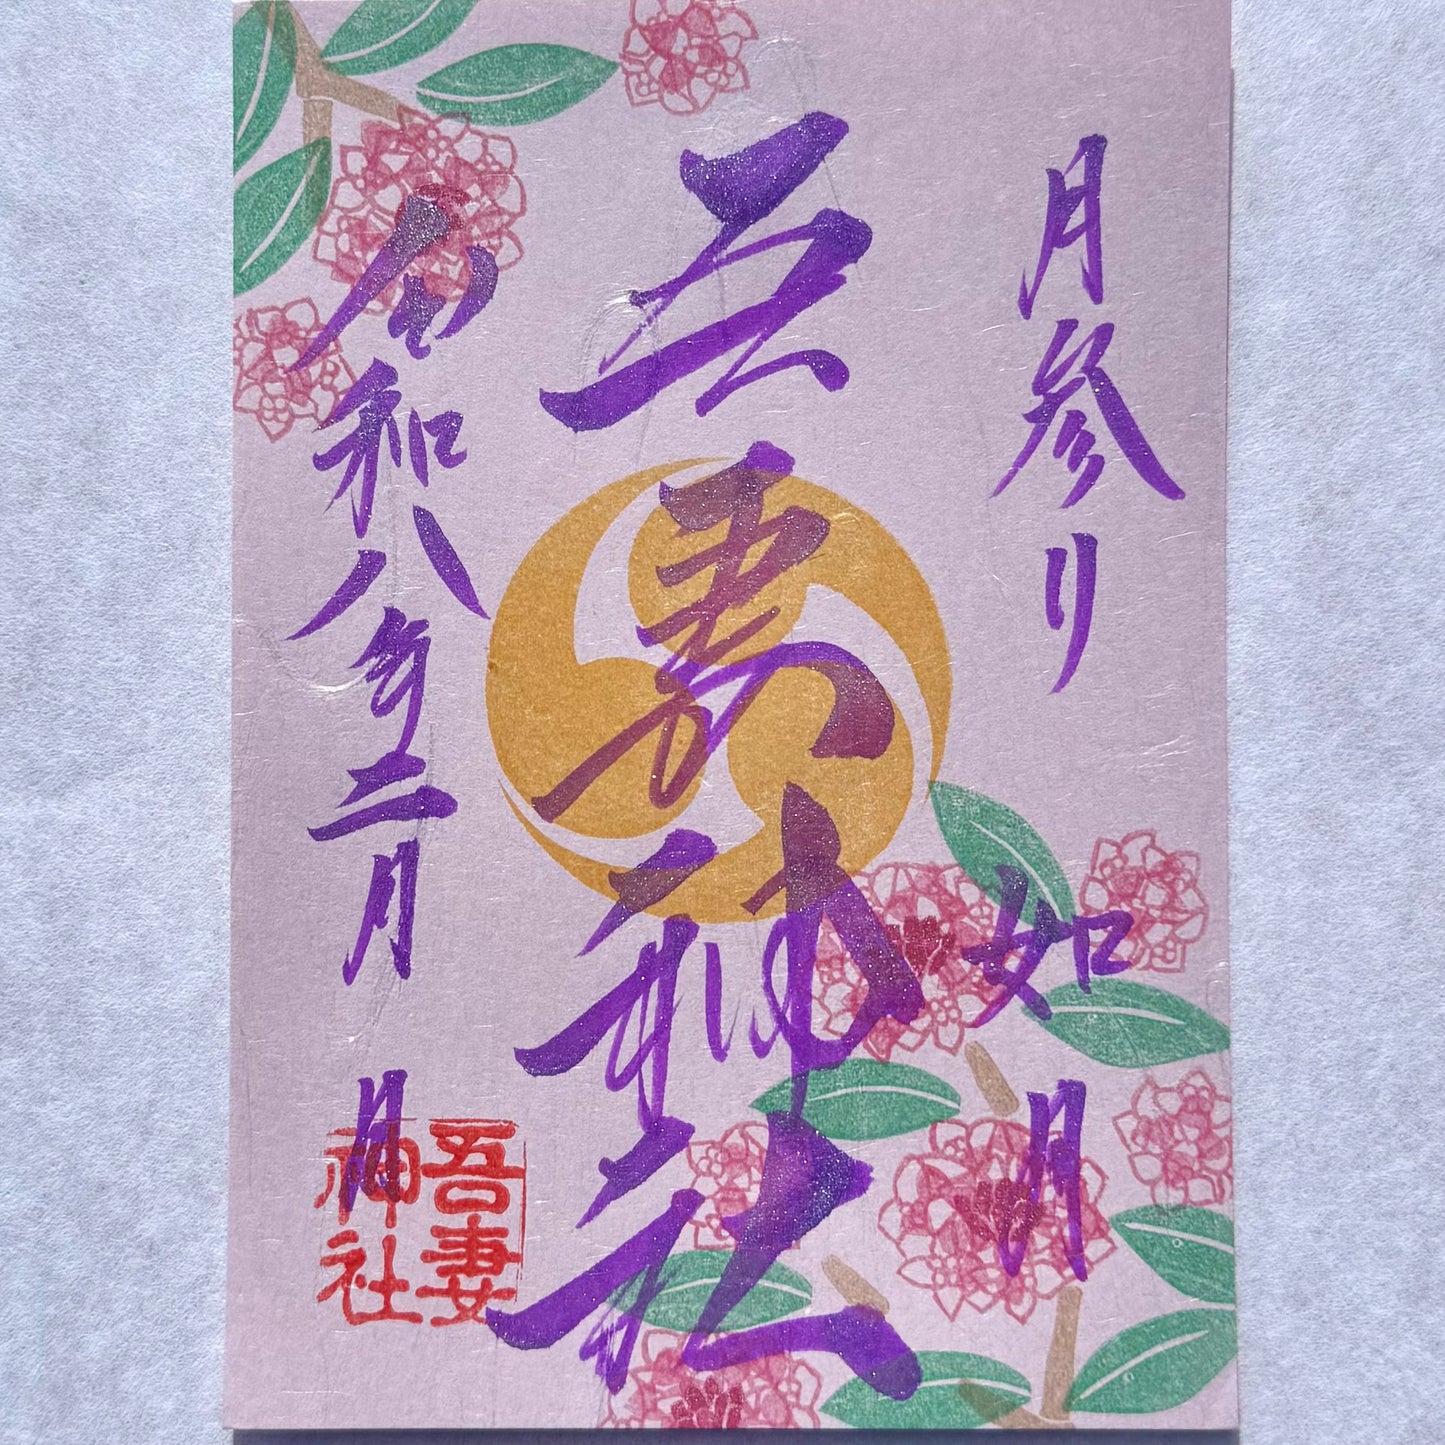 月参り
如月
吾妻神社
令和八年二月　日
吾妻
神社